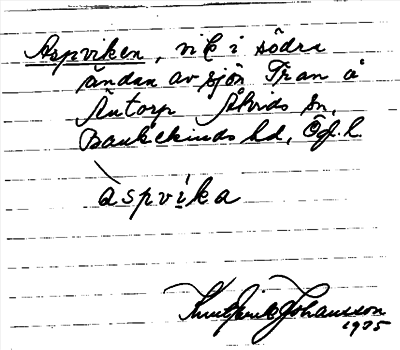 Aspviken, vik i södra
ändan av sjön Tran å
Äntorp Åtvids sn,
Bankekinds hd, Ög. l.
àspvika
Knut Erik Johansson
1975